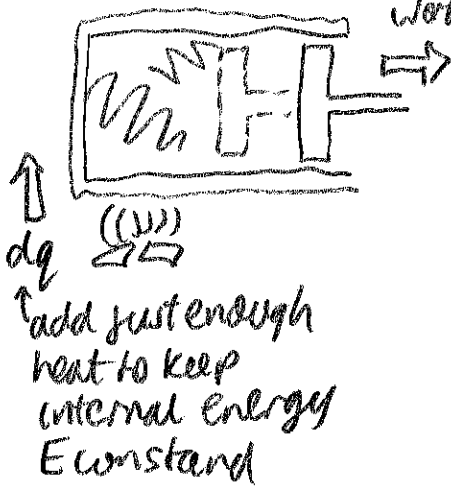 dq
add just enough
heat to keep
internal energy
E constand